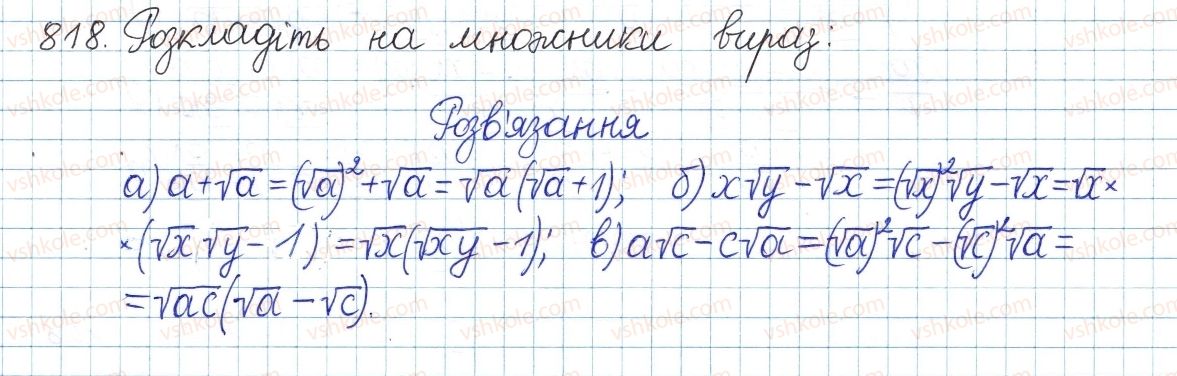 818. Розкладіть на множники вираз:
Розв'язання
а) a+√a = (√a)²+√a = √a(√a+1); б) x√y-√x = (√x)²√y-√x = √x×
×(√x√y-1) = √x(√xy-1); в) a√c-c√a = (√a)²√c-(√c)²√a =
= √ac(√a-√c).